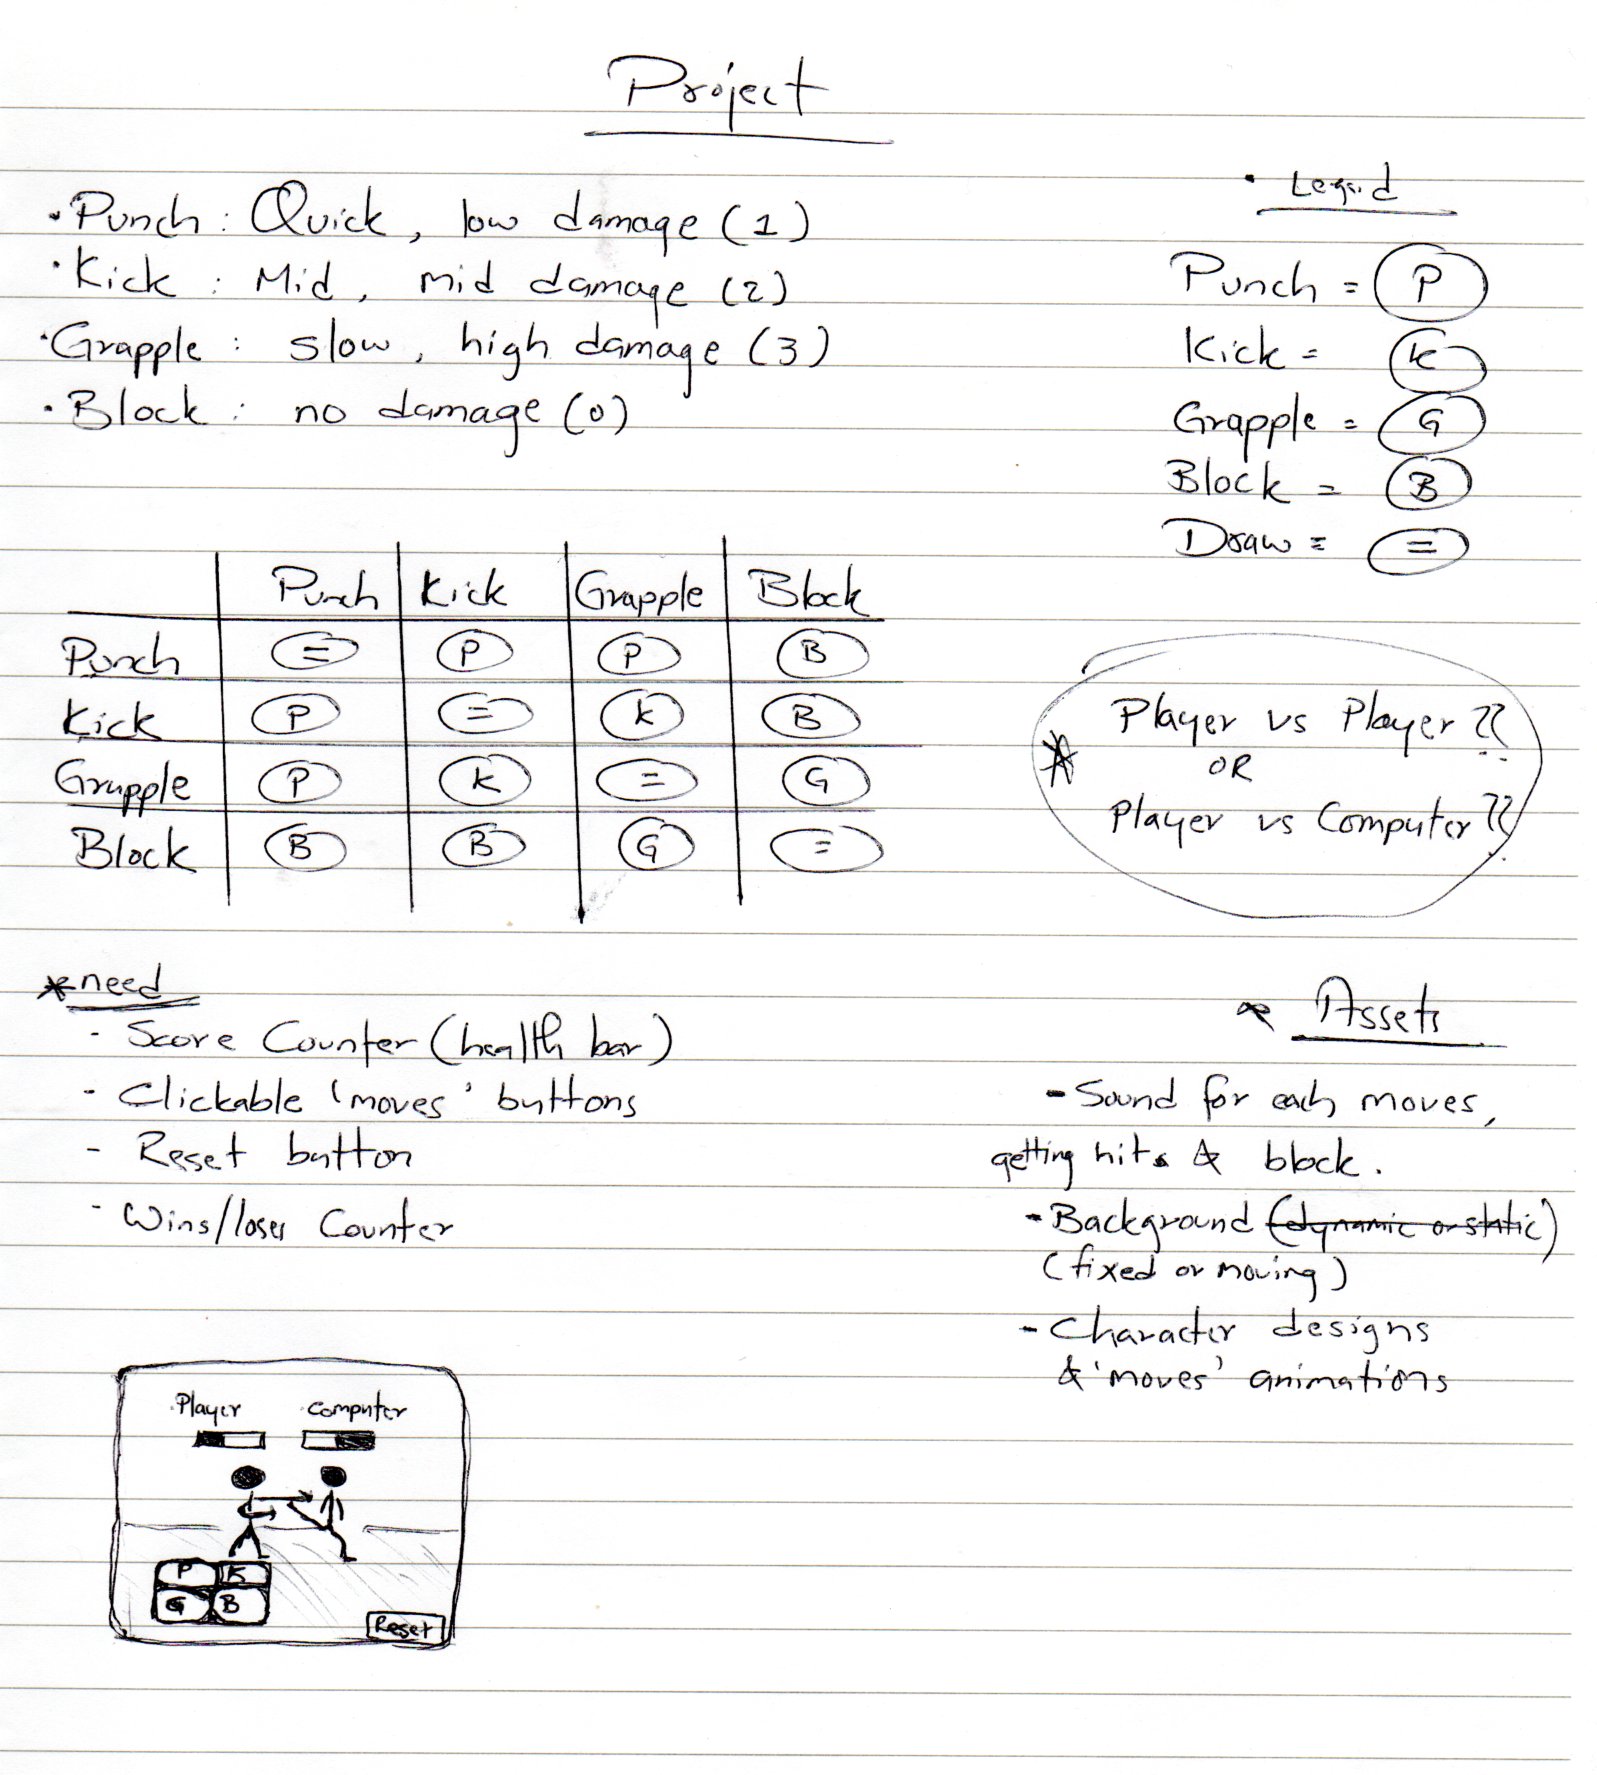 Project
• Punch : Quick, low damage (1)
• Kick : Mid, mid damage (2)
• Grapple : slow, high damage (3)
• Block : no damage (0)
• Legend
Punch = P
Kick = K
Grapple = G
Block = B
Draw = =
Punch Kick Grapple Block
Punch = P P B
Kick P = K B
Grapple P K = G
Block B B G =
* Player vs Player ??
OR
Player vs Computer ??
* need
- Score Counter (health bar)
- Clickable 'moves' buttons
- Reset button
- Wins/loses Counter
* Assets
- Sound for each moves,
getting hits & block.
- Background (dynamic or static)
(fixed or moving)
- Character designs
& 'moves' animations
Player computer
P K
G B
Reset